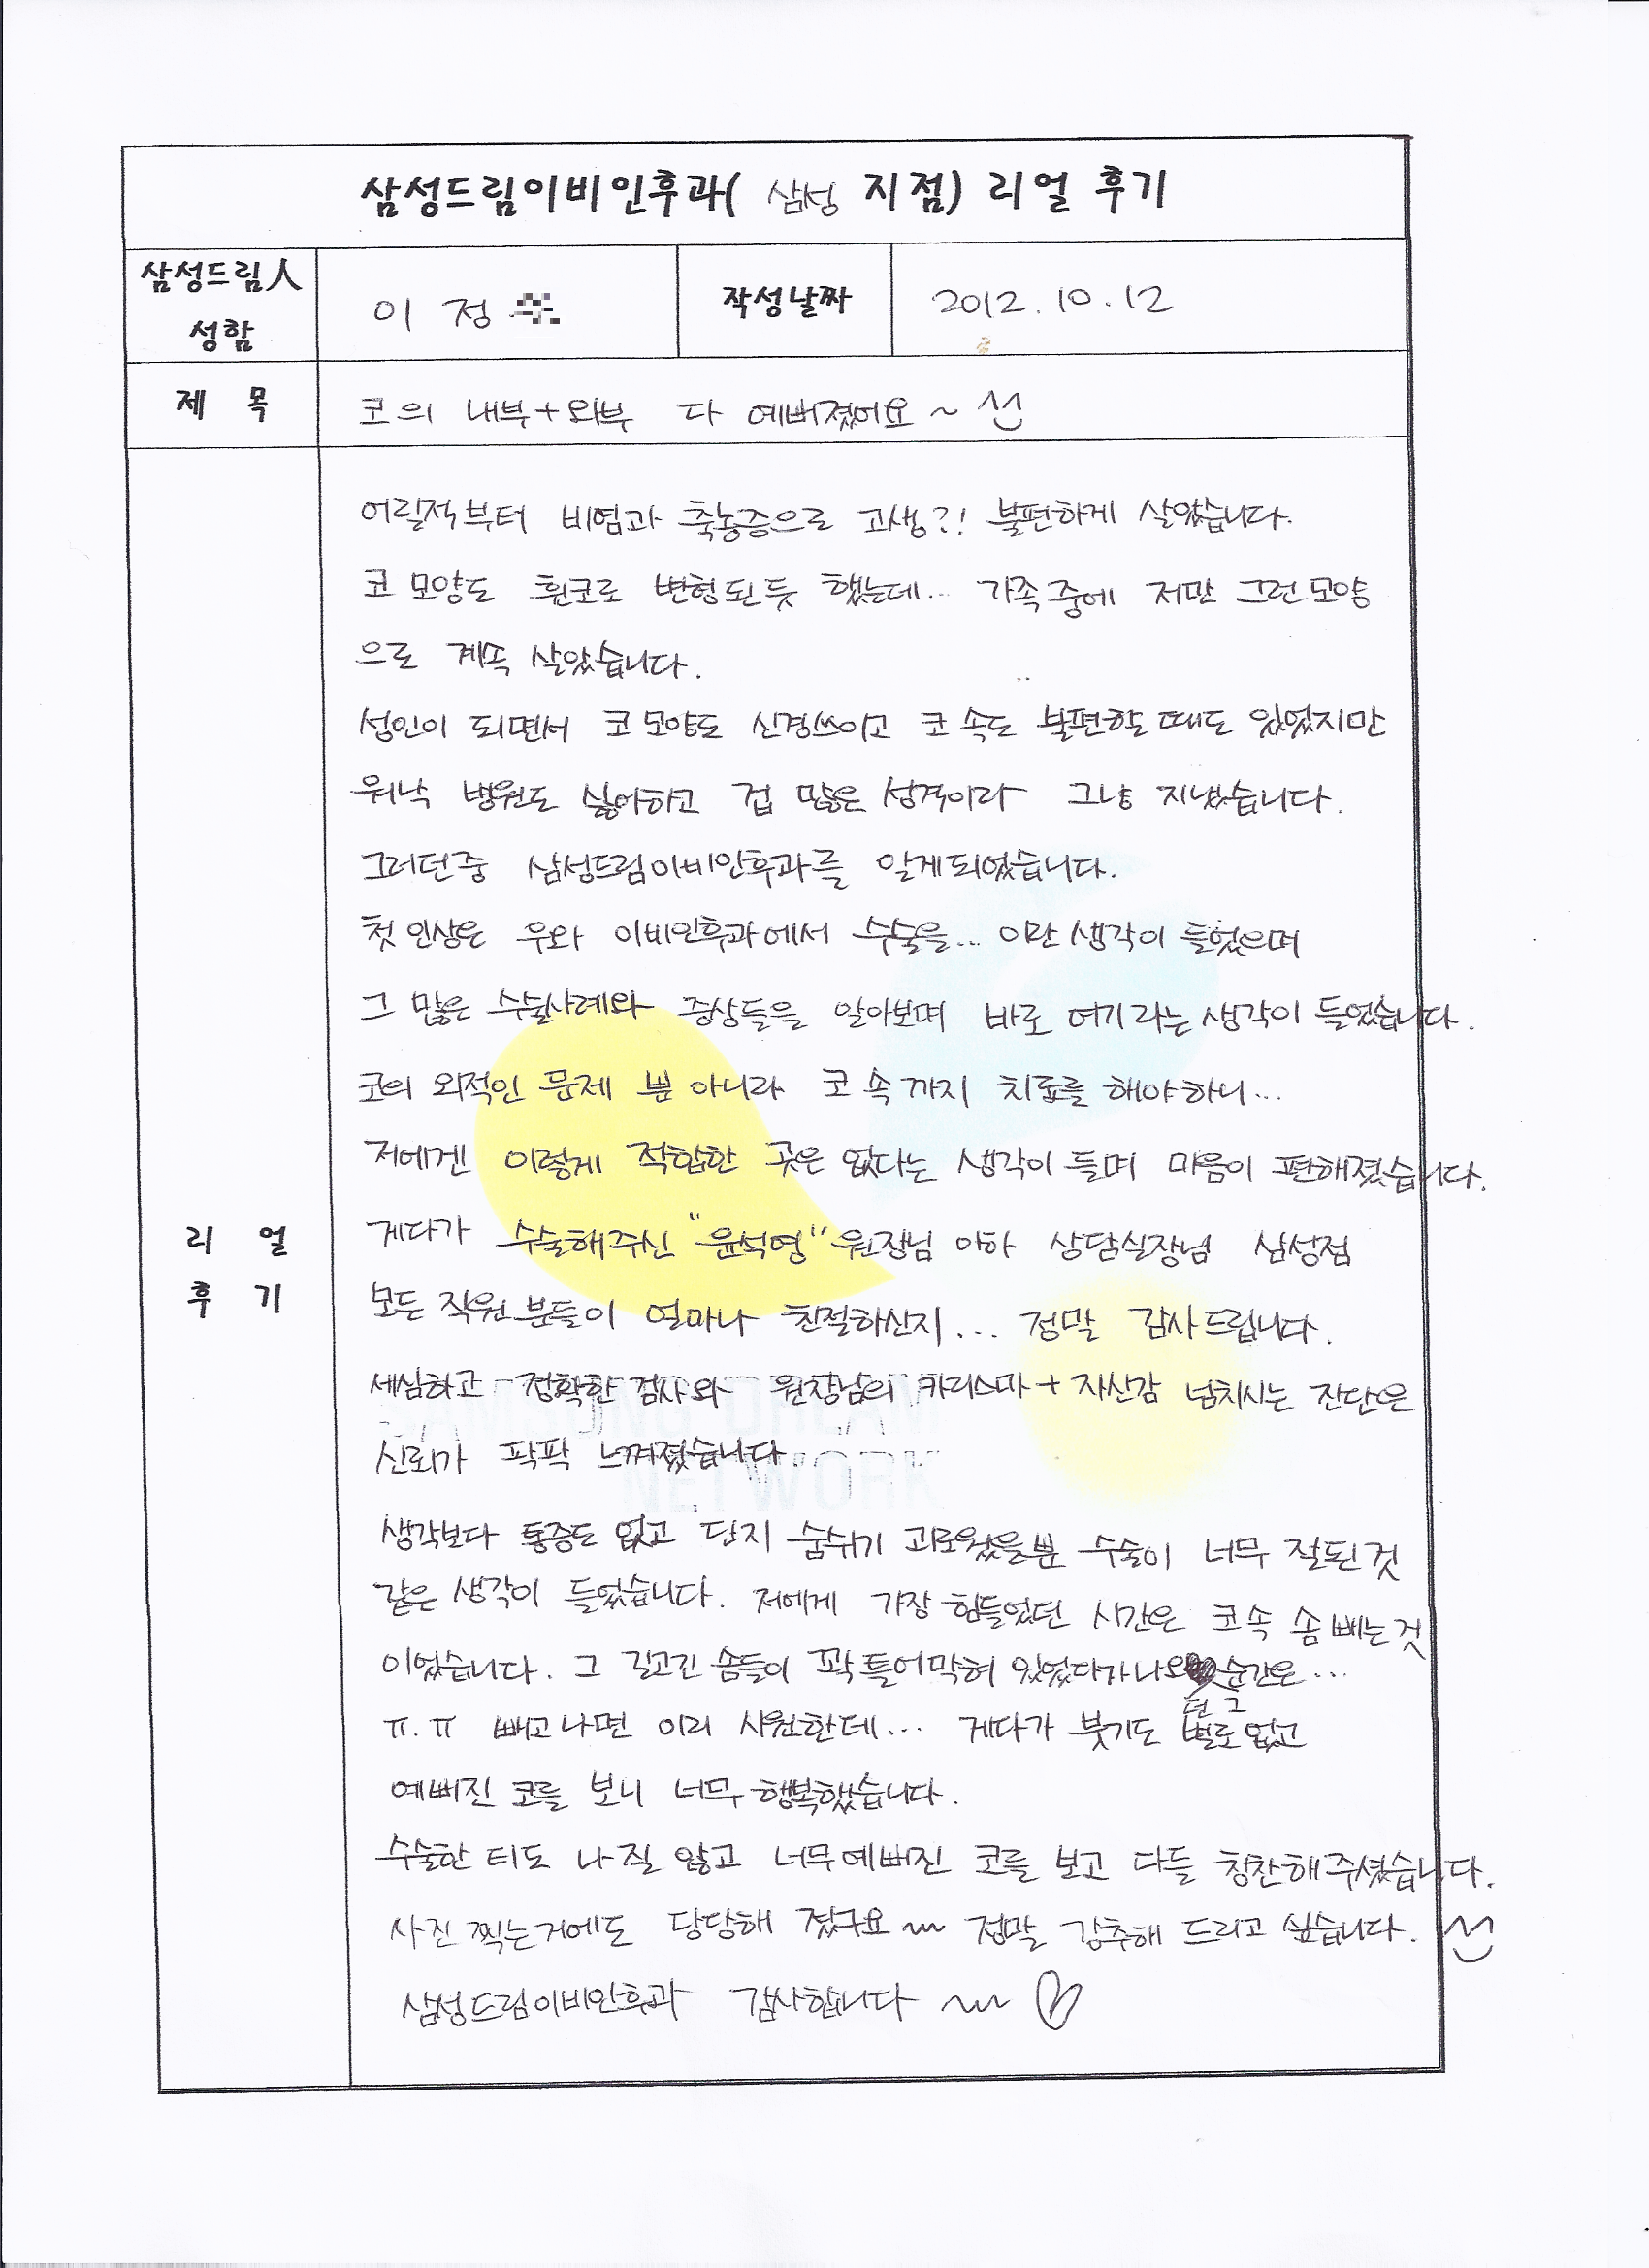 삼성드림이비인후과( 삼성 지점) 리얼 후기
삼성드림人 성함
이 정
작성날짜
2012.10.12
제 목
코의 내부+외부 다 예뻐졌어요~ ^^
리 얼 후 기
어릴적부터 비염과 축농증으로 고생?! 불편하게 살았습니다.
코 모양도 휜코로 변형된듯 했는데... 가족중에 저만 그런모양
으로 계속 살았습니다.
성인이 되면서 코 모양도 신경쓰이고 코 속도 불편할때도 있었지만
워낙 병원도 싫어하고 겁 많은 성격이라 그냥 지냈습니다.
그러던중 삼성드림이비인후과를 알게되었습니다.
첫 인상은 우와 이비인후과에서 수술을... 이란 생각이 들었으며
그 많은 수술사례와 증상들을 알아보며 바로 여기라는 생각이 들었습니다.
코의 외적인 문제 뿐 아니라 코 속까지 치료를 해야하니...
저에겐 이렇게 적합한 곳은 없다는 생각이 들며 마음이 편해졌습니다.
게다가 수술해주신 "윤석영" 원장님 이하 상담실장님 삼성점
모든 직원분들이 얼마나 친절하신지... 정말 감사드립니다.
세심하고 정확한 검사와 원장님의 카리스마 + 자신감 넘치시는 진단은
신뢰가 팍팍 느껴졌습니다.
SAMSUNG DREAM
NETWORK
생각보다 통증도 없고 단지 숨쉬기 괴로웠을뿐 수술이 너무 잘된것
같은 생각이 들었습니다. 저에게 가장 힘들었던 시간은 코속 솜 빼는것
이었습니다. 그 길고긴 솜들이 꽉 틀어막혀 있었다가 나오던 그 순간은...
ㅠ.ㅠ 빼고나면 이리 시원한데... 게다가 붓기도 별로없고
예뻐진 코를 보니 너무 행복했습니다.
수술한 티도 나질 않고 너무예뻐진 코를 보고 다들 칭찬해주셨습니다.
사진 찍는거에도 당당해 졌구요~ 정말 강추해 드리고 싶습니다. ^^
삼성드림이비인후과 감사합니다 ~ ♡